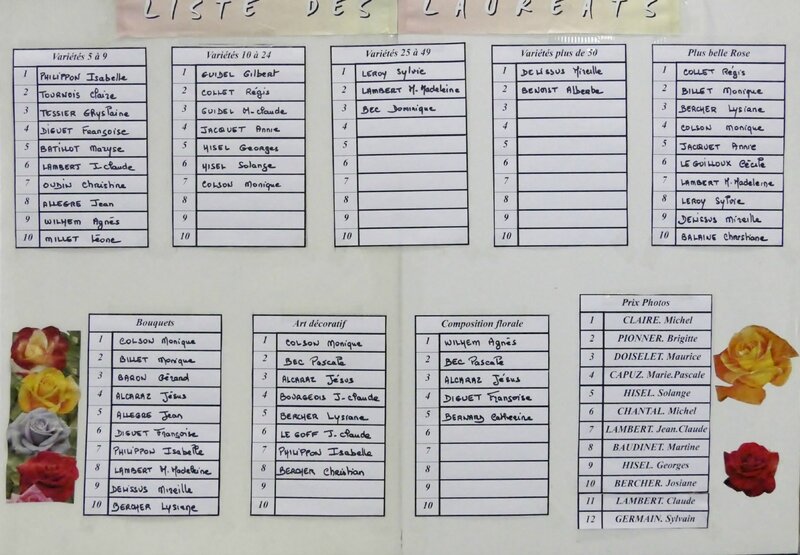 LISTE DES LAUREATS
Variétés 5 à 9
1 PHILIPPON Isabelle
2 TOURNOIS Claire
3 TESSIER GHyslaine
4 DIGUET Françoise
5 BATILLOT Maryse
6 LAMBERT J-Claude
7 OUDIN Christine
8 ALLEGRE Jean
9 WILHEM Agnés
10 MILLET Léone
Variétés 10 à 24
1 GUIDEL Gilbert
2 COLLET Régis
3 GUIDEL M-Claude
4 JACQUET Annie
5 HISEL Georges
6 HISEL Solange
7 COLSON Monique
8
9
10
Variétés 25 à 49
1 LEROY Sylvie
2 LAMBERT M-Madeleine
3 BEC Dominique
4
5
6
7
8
9
10
Variétés plus de 50
1 DELISSUS Mireille
2 BENOIST
3
4
5
6
7
8
9
10
Plus belle Rose
1 COLLET Régis
2 BILLET Monique
3 BERCHER Lysiane
4 COLSON Monique
5 JACQUET Annie
6 LE GUILLOUX Cécile
7 LAMBERT M.Madeleine
8 LEROY Sylvie
9 DELISSUS Mireille
10 BALAINE Christiane
Bouquets
1 COLSON Monique
2 BILLET Monique
3 BARON Gérard
4 ALCARAZ Jésus
5 ALLEGRE Jean
6 DIGUET Françoise
7 PHILIPPON Isabelle
8 LAMBERT M.Madeleine
9 DELISSUS Mireille
10 BERCHER Lysiane
Art décoratif
1 COLSON Monique
2 BEC Pascale
3 ALCARAZ Jésus
4 BOURGEOIS J-Claude
5 BERCHER Lysiane
6 LE GOFF J-Claude
7 PHILIPPON Isabelle
8 BERCHER Christian
9
10
Composition florale
1 WILHEM Agnés
2 BEC Pascale
3 ALCARAZ Jésus
4 DIGUET Françoise
5 BERNARD Catherine
6
7
8
9
10
Prix Photos
1 CLAIRE. Michel
2 PIONNER. Brigitte
3 DOISELET. Maurice
4 CAPUZ. Marie.Pascale
5 HISEL. Solange
6 CHANTAL. Michel
7 LAMBERT. Jean.Claude
8 BAUDINET. Martine
9 HISEL. Georges
10 BERCHER. Josiane
11 LAMBERT. Claude
12 GERMAIN. Sylvain